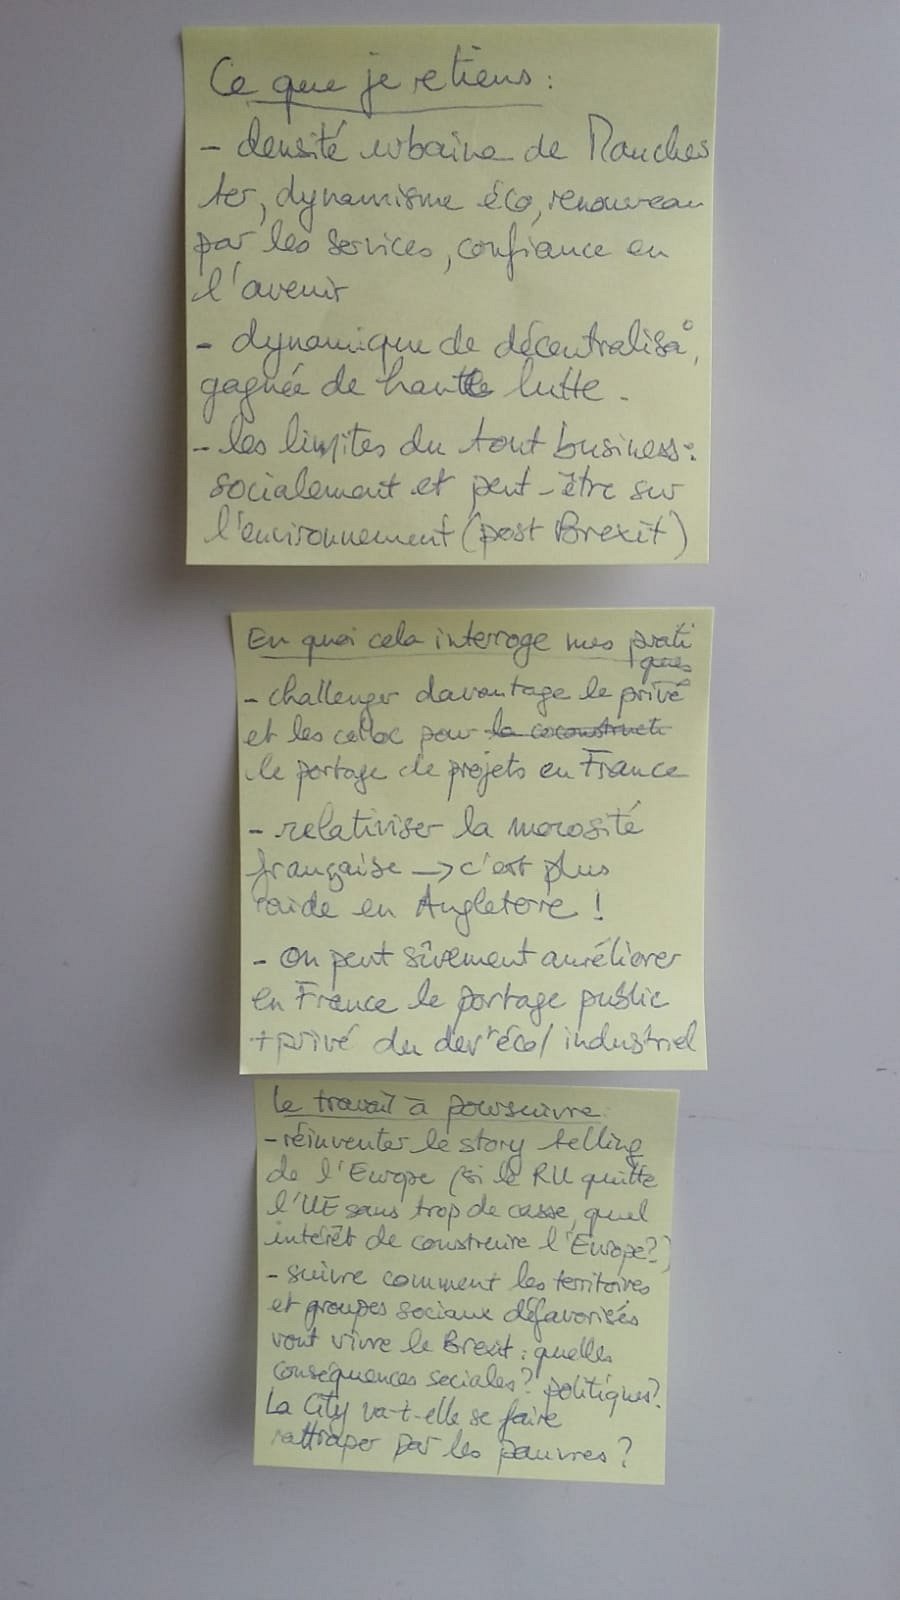 Ce que je retiens :
- densité urbaine de Manches
ter, dynamisme éco, renouveau
par les services, confiance en
l'avenir
- dynamique de décentralisa°,
gagnée de haute lutte.
- les limites du tout business :
socialement et peut-être sur
l'environnement (post Brexit)
En quoi cela interroge mes prati
ques
- challenger davantage le privé
et les colloc pour la coconstructi
le portage de projets en France
- relativiser la morosité
française -> c'est plus
raide en Angleterre !
- On peut sûrement améliorer
en France le portage public
+ privé du devt éco/industriel
Le travail à poursuivre
- réinventer le story telling
de l'Europe (si le RU quitte
l'UE sans trop de casse, quel
intérêt de construire l'Europe ?)
- suivre comment les territoires
et groupes sociaux défavorisés
vont vivre le Brexit : quelles
conséquences sociales ? politiques ?
La City va-t-elle se faire
rattraper par les pauvres ?